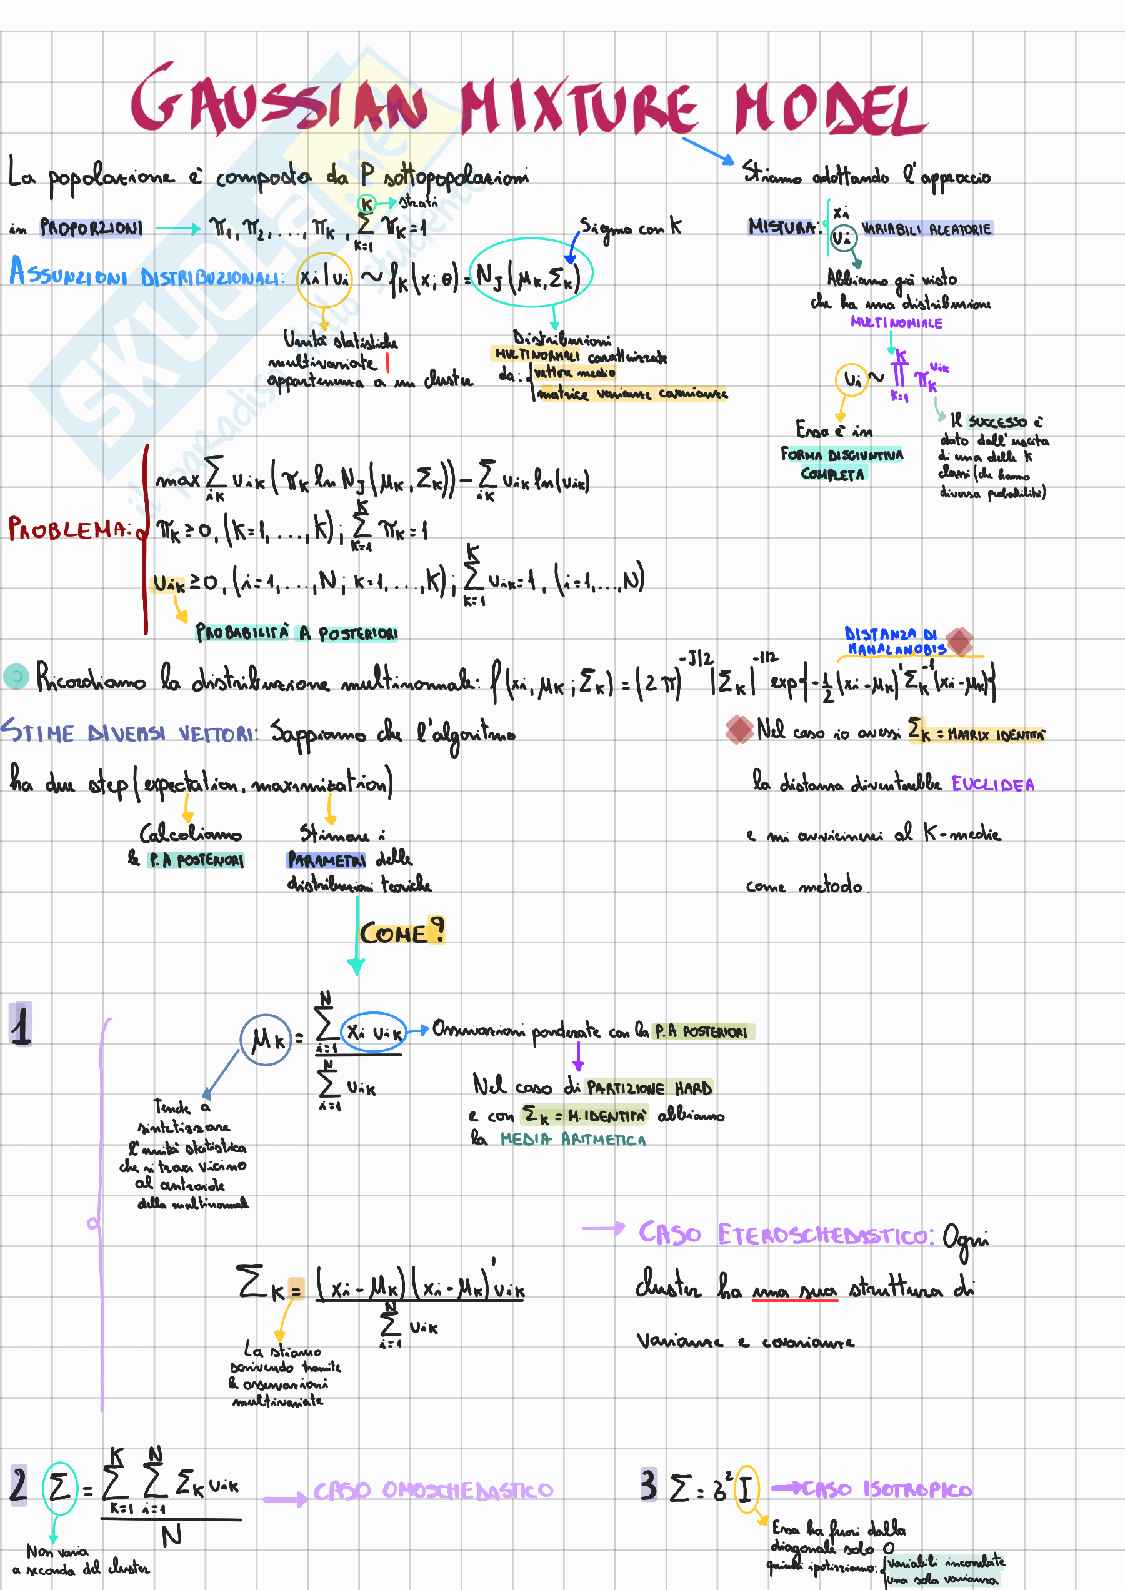 GAUSSIAN MIXTURE MODEL
La popolazione è composta da P sottopopolazioni
K → strati
in PROPORZIONI → π₁, π₂, ..., π_K, ∑_{K=1}^{K} π_K = 1
Sigma con K
ASSUNZIONI DISTRIBUZIONALI: x_i | u_i ~ f_K(x, θ) = N_J(μ_K, Σ_K)
Unità statistiche
multivariate |
appartenenza a un cluster
Distribuzioni
MULTINORMALI caratterizzate
da: { vettore medio
matrice varianze covarianze
Stiamo adottando l'approccio
MISTURA: { x_i
u_i VARIABILI ALEATORIE
Abbiamo già visto
che ha una distribuzione
MULTINOMIALE
u_i ~ ∏_{K=1}^{K} π_K^{u_iK}
Essa è in
FORMA DISGIUNTIVA
COMPLETA
Il SUCCESSO è
dato dall'uscita
di una delle K
classi (che hanno
diversa probabilità)
PROBLEMA:
max ∑_{iK} u_iK (π_K ln N_J(μ_K, Σ_K)) - ∑_{iK} u_iK ln(u_iK)
π_K ≥ 0, (K=1, ..., K); ∑_{K=1}^{K} π_K = 1
u_iK ≥ 0, (i=1, ..., N; K=1, ..., K); ∑_{K=1}^{K} u_iK = 1, (i=1, ..., N)
PROBABILITÀ A POSTERIORI
DISTANZA DI
MAHALANOBIS
Ricordiamo la distribuzione multinormale: f(x_i, μ_K; Σ_K) = (2π)^{-J/2} |Σ_K|^{-1/2} exp{-1/2 (x_i - μ_K)' Σ_K^{-1} (x_i - μ_K)}
STIME DIVERSI VETTORI: Sappiamo che l'algoritmo
ha due step (expectation, maximization)
Calcoliamo
le P. A POSTERIORI
Stimare i
PARAMETRI delle
distribuzioni teoriche
Nel caso io avessi Σ_K = MATRIX IDENTITÀ
la distanza diventerebbe EUCLIDEA
e mi avvicinerei al K-medie
come metodo.
COME?
1
μ_K = ∑_{i=1}^{N} x_i u_iK / ∑_{i=1}^{N} u_iK
→ Osservazioni ponderate con la P. A POSTERIORI
Nel caso di PARTIZIONE HARD
e con Σ_K = M. IDENTITÀ abbiamo
la MEDIA ARITMETICA
Tende a
sintetizzare
l'unità statistica
che si trova vicino
al centroide
della multinormale
Σ_K = (x_i - μ_K)(x_i - μ_K)' u_iK / ∑_{i=1}^{N} u_iK
La stiamo
scrivendo tramite
le osservazioni
multivariate
→ CASO ETEROSCHEDASTICO: Ogni
cluster ha una sua struttura di
varianze e covarianze
2 Σ = ∑_{K=1}^{K} ∑_{i=1}^{N} Σ_K u_iK / N → CASO OMOSCHEDASTICO
Non varia
a seconda del cluster
3 Σ = δ² I → CASO ISOTROPICO
Essa ha fuori dalla
diagonale solo 0
quindi ipotizziamo: { variabili incorrelate
una sola varianza
SKUOLA.net
il paradiso dello studente